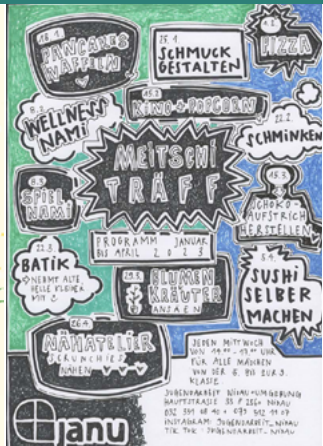 18.1
PANCAKES
WAFFELN
25.1
SCHMUCK
GESTALTEN
1.2
PIZZA
8.2
WELLNESS
NAMI
15.2
KINO & POPCORN
22.2
SCHMINKEN
MEITSCHI
TRÄFF
SPIEL
NAMI
15.3
SCHOKO-
AUFSTRICH
HERSTELLEN
PROGRAMM JANUAR
BIS APRIL 2023
22.3
BATIK
NEHMT ALTE,
HELLE KLEIDER
MIT
29.3
BLUMEN
KRÄUTER
ANSÄEN
5.4
SUSHI
SELBER
MACHEN
26.4
NÄHATELIER
SCRUNCHIES
NÄHEN
JEDEN MITTWOCH
VON 14.00 - 17.00 UHR
FÜR ALLE MÄDCHEN
VON DER
KLASSE
JUGENDARBEIT NIDAU + UMGEBUNG
HAUPTSTRASSE
NIDAU
INSTAGRAM: JUGENDARBEIT_NIDAU
TIK TOK: JUGENDARBEIT_NIDAU
janu